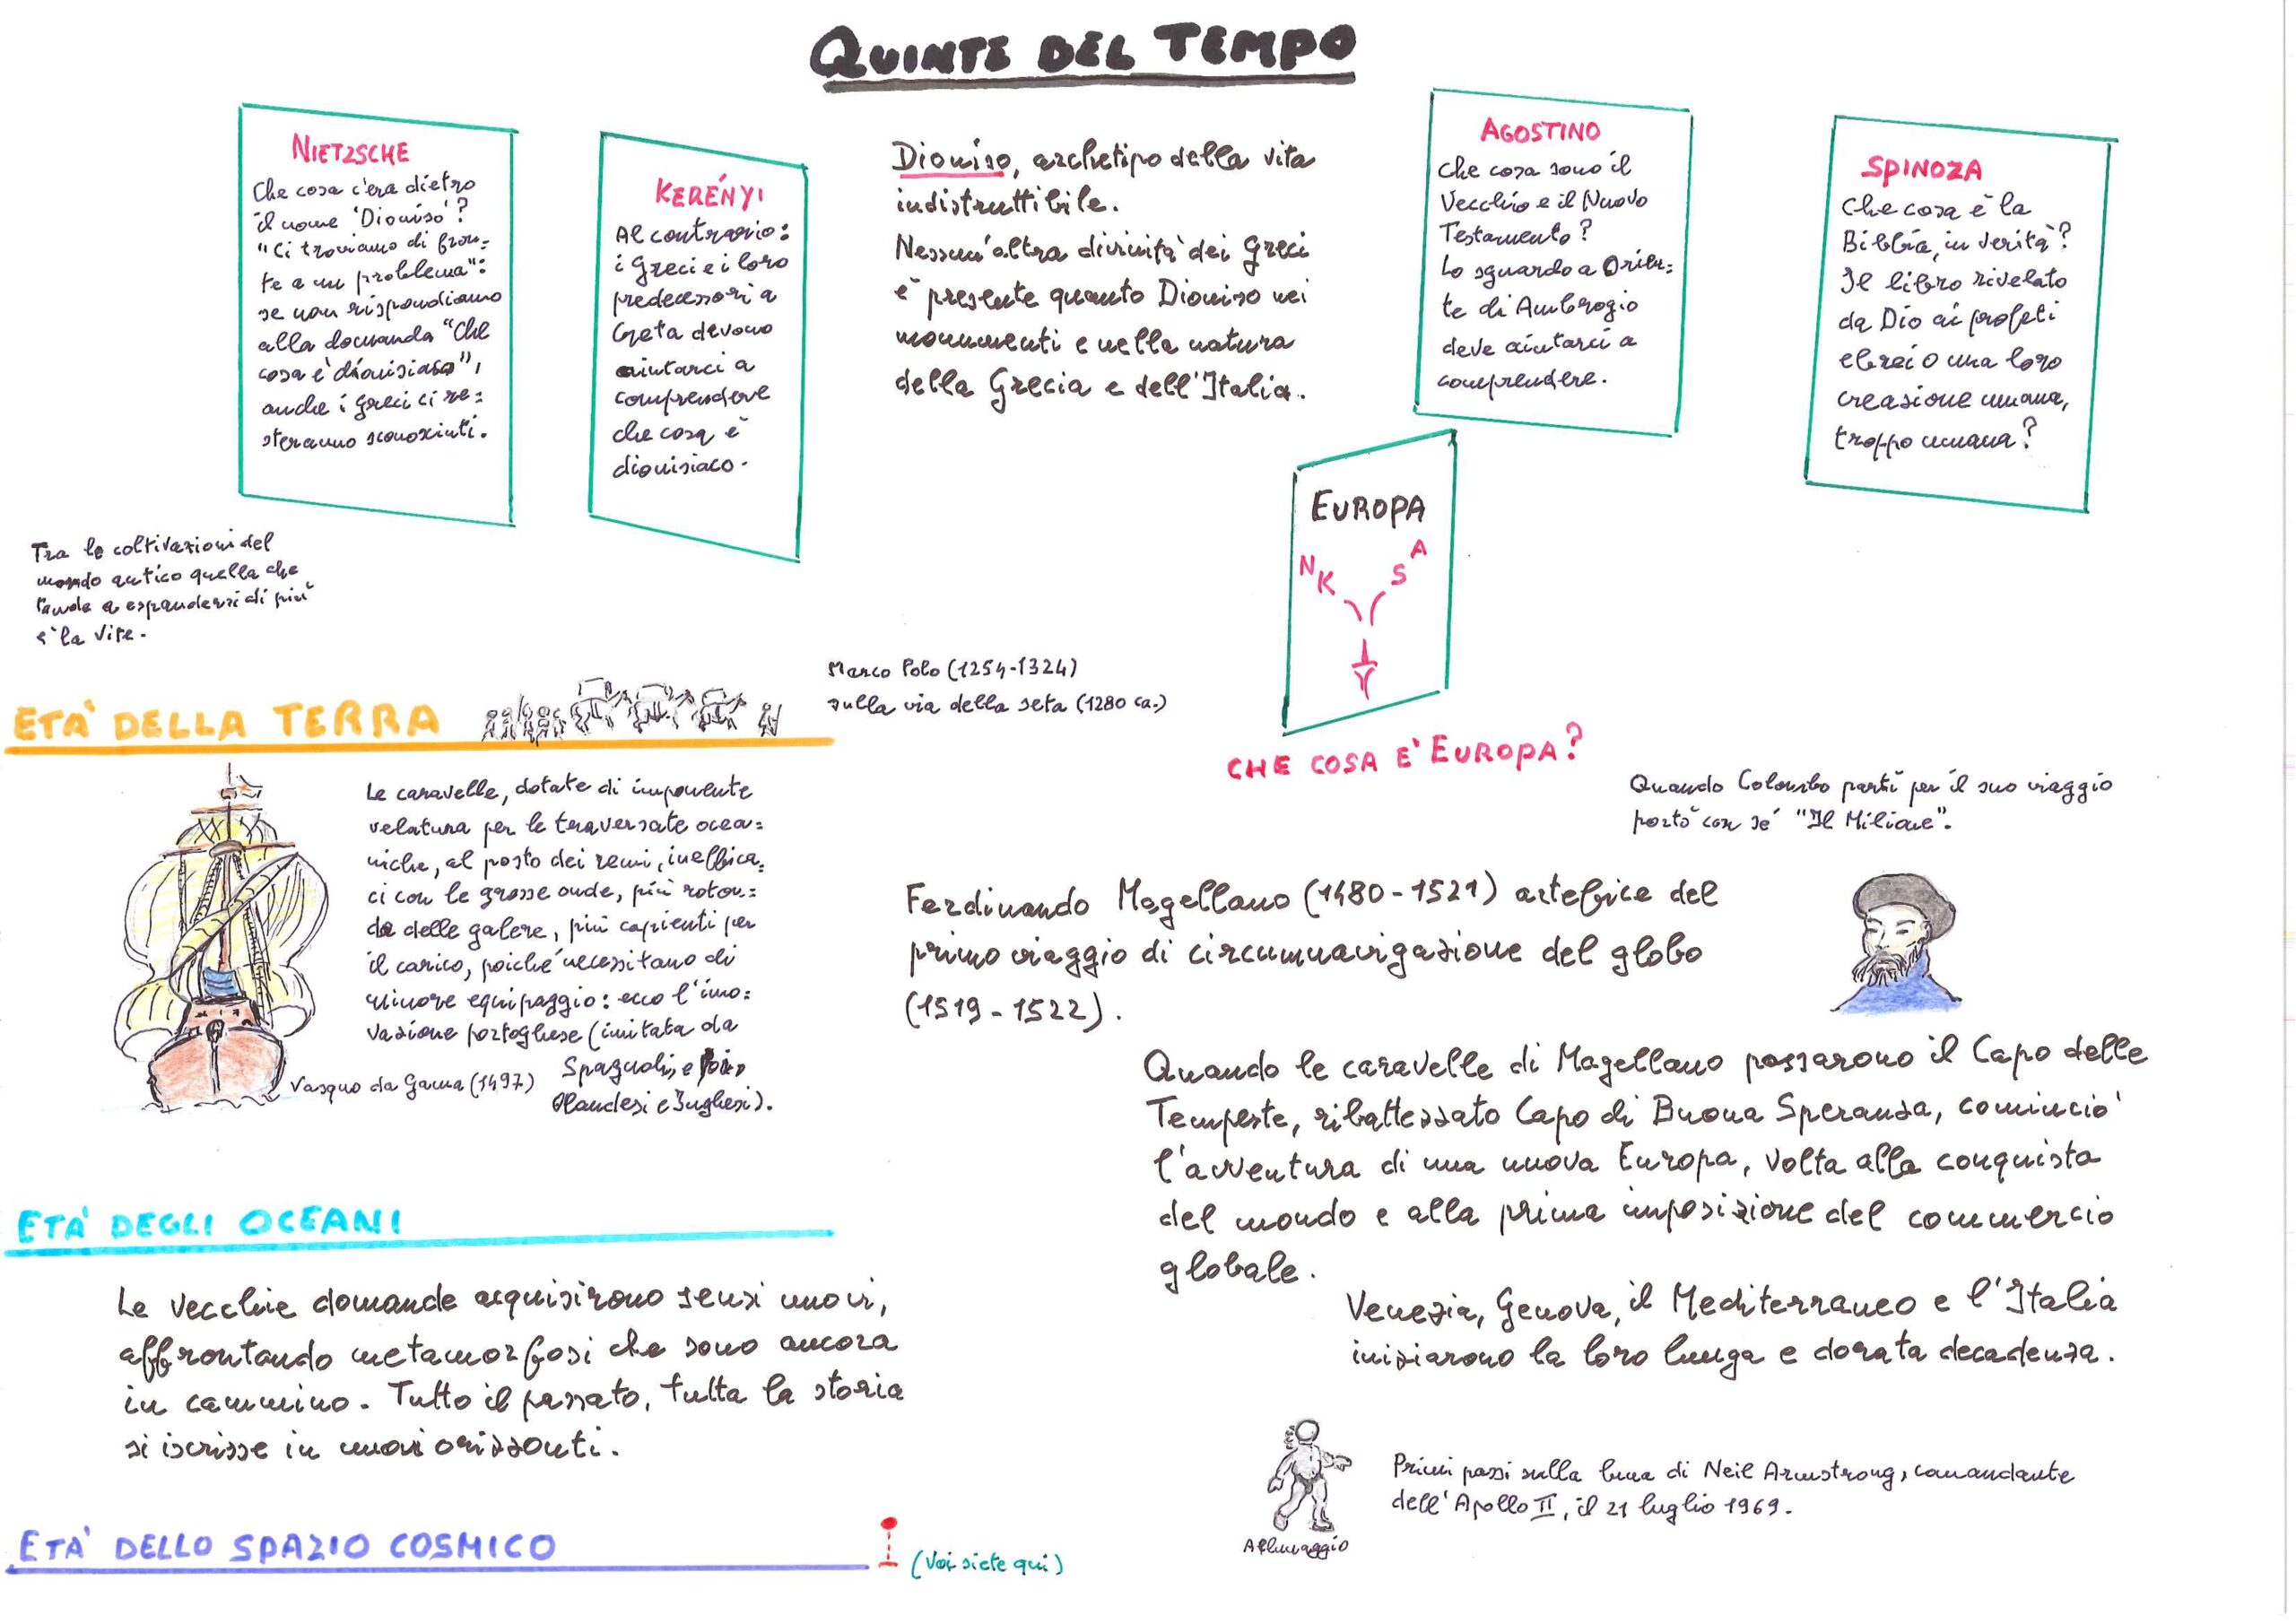 QUINTE DEL TEMPO
NIETZSCHE
Che cosa c'era dietro
il nome 'Dioniso'?
"Ci troviamo di fron=
te a un problema":
se non rispondiamo
alla domanda "Che
cosa è dionisiaco",
anche i Greci ci re=
steranno sconosciuti.
KERÉNYI
Al contrario:
i Greci e i loro
predecessori a
Creta devono
aiutarci a
comprendere
che cosa è
dionisiaco.
Dioniso, archetipo della vita
indistruttibile.
Nessun'altra divinità dei Greci
è presente quanto Dioniso nei
monumenti e nella natura
della Grecia e dell'Italia.
AGOSTINO
Che cosa sono il
Vecchio e il Nuovo
Testamento?
Lo sguardo a Orien=
te di Ambrogio
deve aiutarci a
comprendere.
SPINOZA
Che cosa è la
Bibbia, in verità?
Il libro rivelato
da Dio ai profeti
ebrei o una loro
creazione umana,
troppo umana?
EUROPA
N K S A
CHE COSA E' EUROPA?
Tra le coltivazioni del
mondo antico quella che
tende a espandersi di più
è la vite.
Marco Polo (1254-1324)
sulla via della seta (1280 ca.)
ETA' DELLA TERRA
Quando Colombo partì per il suo viaggio
portò con sé "Il Milione".
Le caravelle, dotate di imponente
velatura per le traversate ocea=
niche, al posto dei remi, ineffica=
ci con le grosse onde, più roton=
de delle galere, più capienti per
il carico, poiché necessitano di
minore equipaggio: ecco l'inno=
vazione portoghese (imitata da
Spagnoli, e poi
Olandesi e Inglesi).
Vasquo da Gama (1497)
Ferdinando Magellano (1480-1521) artefice del
primo viaggio di circumnavigazione del globo
(1519-1522).
Quando le caravelle di Magellano passarono il Capo delle
Tempeste, ribattezzato Capo di Buona Speranza, cominciò
l'avventura di una nuova Europa, volta alla conquista
del mondo e alla prima imposizione del commercio
globale.
Venezia, Genova, il Mediterraneo e l'Italia
iniziarono la loro lunga e dorata decadenza.
ETA' DEGLI OCEANI
Le vecchie domande acquisirono sensi nuovi,
affrontando metamorfosi che sono ancora
in cammino. Tutto il passato, tutta la storia
si iscrisse in nuovi orizzonti.
Primi passi sulla luna di Neil Armstrong, comandante
dell'Apollo II, il 21 luglio 1969.
Allunaggio
ETA' DELLO SPAZIO COSMICO
(Voi siete qui)